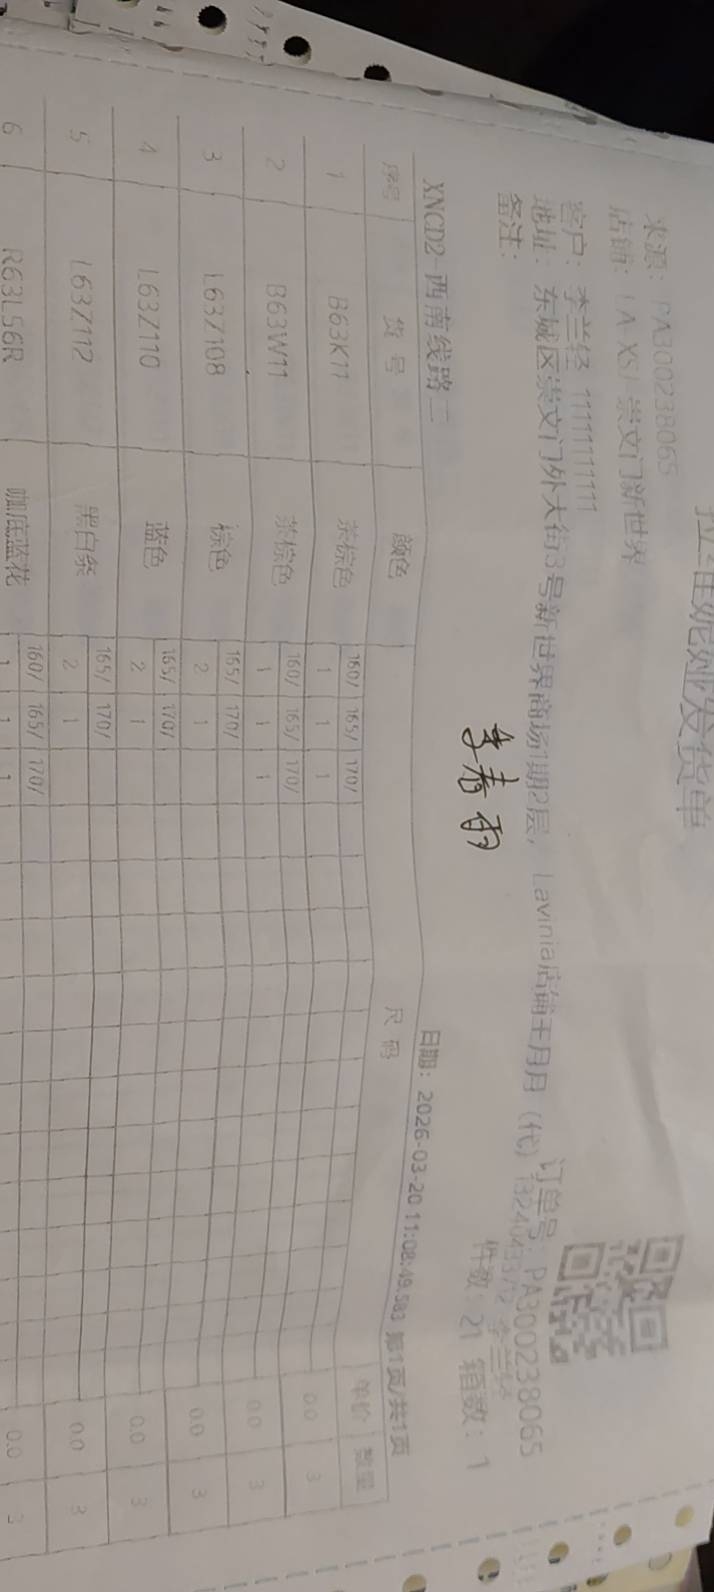 发货单
来源：PA300238065
店铺：LA XSI 崇文门新世界
客户：李兰轻 11111111111
地址：东城区崇文门外大街3号新世界商场1期2层，Lavinia店铺王月月（代）
订单号：PA300238065
备注：
李春雨
件数：21 箱数：1
XNCD2-西南线路二
日期：2026-03-20 11:08:49.583 第1页/共1页
序号 货号 颜色 尺码 单价 数量
160/ 165/ 170/
1 B63K11 茶棕色 1 1 1 0.0 3
160/ 165/ 170/
2 B63W11 茶棕色 1 1 1 0.0 3
165/ 170/
3 L63Z108 棕色 2 1 0.0 3
165/ 170/
4 L63Z110 蓝色 2 1 0.0 3
165/ 170/
5 L63Z112 黑白条 2 1 0.0 3
160/ 165/ 170/
6 R63L56R 咖底蓝花 1 1 1 0.0 3